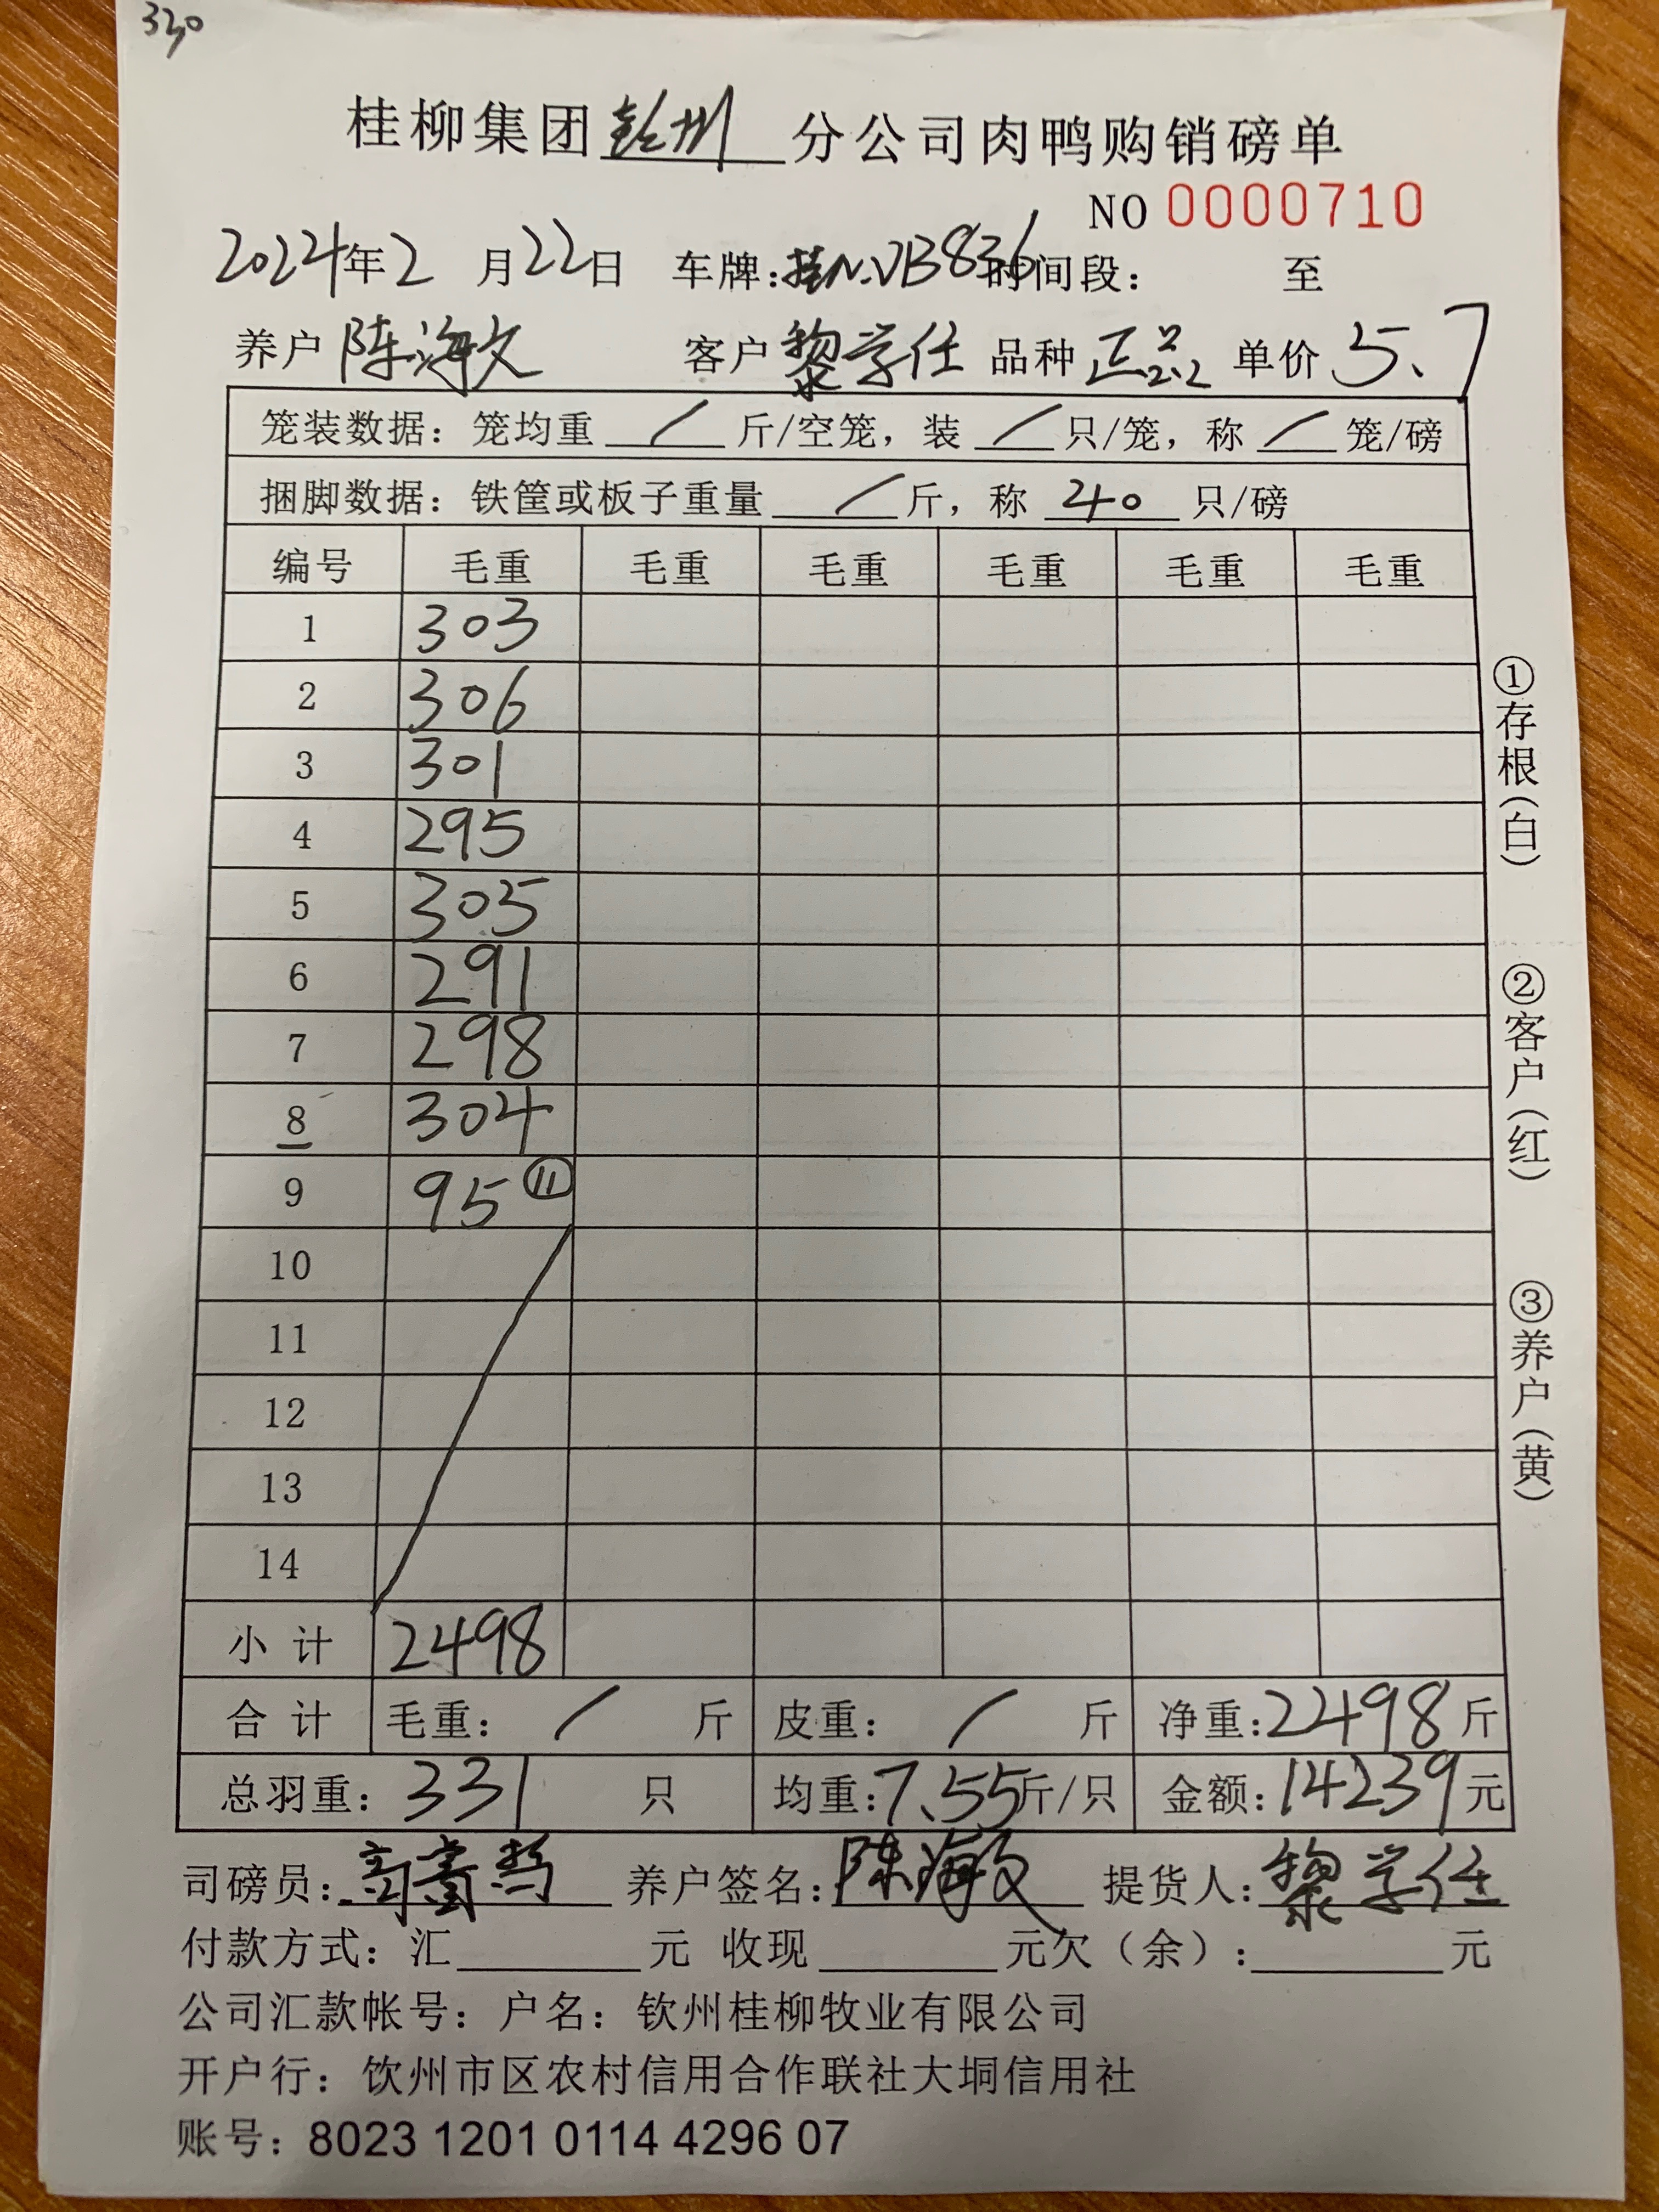 330
桂柳集团钦州分公司肉鸭购销磅单
NO 0000710
2024年2月22日 车牌:桂N.VB836时间段: 至
养户 陈海文 客户 黎学任 品种 正品2.2 单价 5.7
笼装数据:笼均重 / 斤/空笼,装 / 只/笼,称 / 笼/磅
捆脚数据:铁筐或板子重量 / 斤,称 40 只/磅
编号 毛重 毛重 毛重 毛重 毛重 毛重
1 303
2 306
3 301
4 295
5 305
6 291
7 298
8 304
9 95 ⑪
10
11
12
13
14
小计 2498
合计 毛重: / 斤 皮重: / 斤 净重:2498斤
总羽重:331 只 均重:7.55斤/只 金额:14239元
司磅员: 养户签名:陈海文 提货人:黎学任
付款方式:汇 元 收现 元欠(余): 元
公司汇款帐号:户名:钦州桂柳牧业有限公司
开户行:钦州市区农村信用合作联社大垌信用社
账号:8023 1201 0114 4296 07
①存根(白)
②客户(红)
③养户(黄)